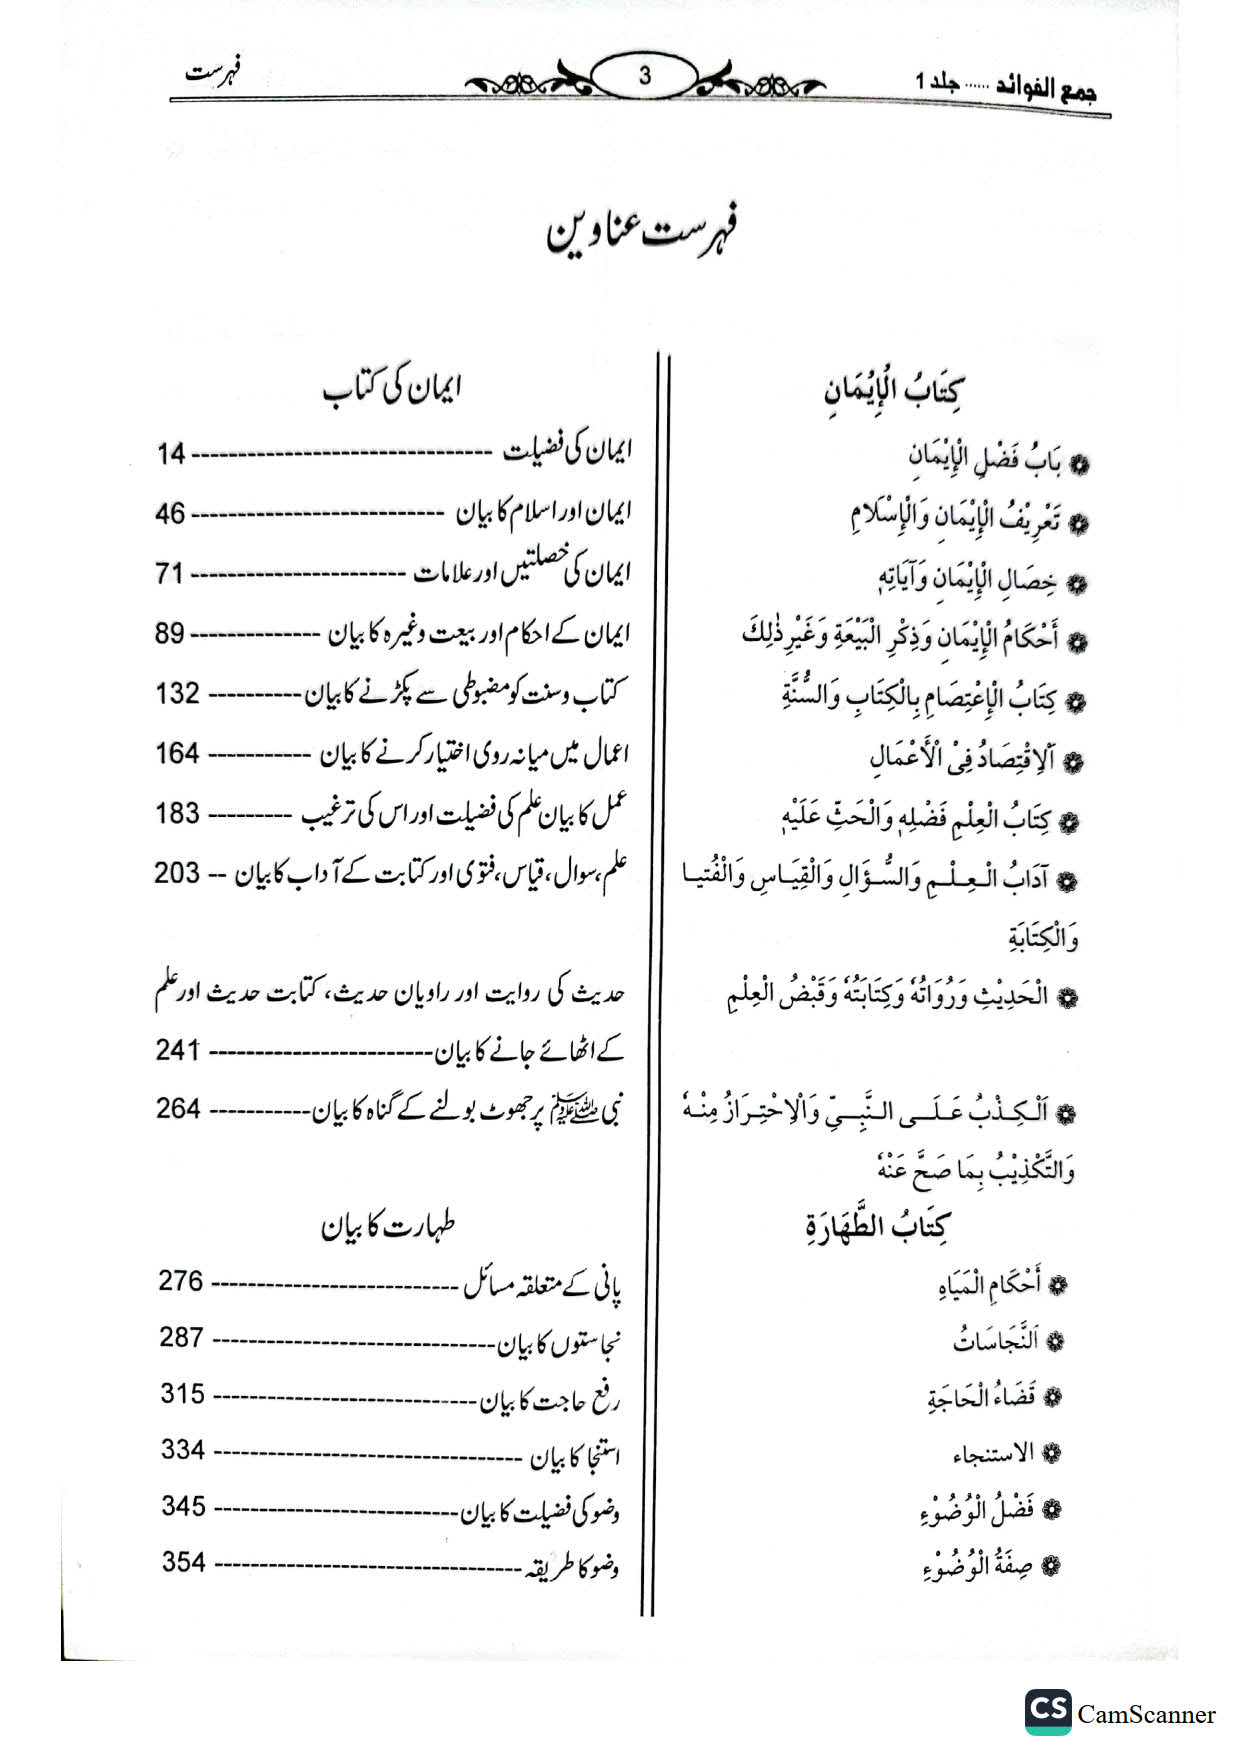 جمع الفوائد ..... جلد 1
3
فہرست
فہرست عناوین
كِتَابُ الْإِيْمَانِ
ایمان کی کتاب
بَابُ فَضْلِ الْإِيْمَانِ
ایمان کی فضیلت -------------------------------- 14
تَعْرِيْفُ الْإِيْمَانِ وَالْإِسْلَامِ
ایمان اور اسلام کا بیان --------------------------- 46
خِصَالِ الْإِيْمَانِ وَآيَاتِهِ
ایمان کی خصلتیں اور علامات ----------------------- 71
أَحْكَامُ الْإِيْمَانِ وَذِكْرِ الْبَيْعَةِ وَغَيْرِ ذٰلِكَ
ایمان کے احکام اور بیعت وغیرہ کا بیان -------------- 89
كِتَابُ الْإِعْتِصَامِ بِالْكِتَابِ وَالسُّنَّةِ
کتاب وسنت کو مضبوطی سے پکڑنے کا بیان ---------- 132
اَلِاقْتِصَادُ فِيْ الْأَعْمَالِ
اعمال میں میانہ روی اختیار کرنے کا بیان ----------- 164
كِتَابُ الْعِلْمِ فَضْلِهِ وَالْحَثِّ عَلَيْهِ
عمل کا بیان علم کی فضیلت اور اس کی ترغیب --------- 183
آدَابُ الْعِلْمِ وَالسُّؤَالِ وَالْقِيَاسِ وَالْفُتيا
علم، سوال، قیاس، فتوی اور کتابت کے آداب کا بیان -- 203
وَالْكِتَابَةِ
الْحَدِيْثِ وَرُوَاتُهُ وَكِتَابَتُهُ وَقَبْضُ الْعِلْمِ
حدیث کی روایت اور راویان حدیث، کتابت حدیث اور علم
کے اٹھائے جانے کا بیان ------------------------ 241
اَلْكِذْبُ عَلَى النَّبِيِّ وَالِاحْتِرَازُ مِنْهُ
نبی ﷺ پر جھوٹ بولنے کے گناہ کا بیان ----------- 264
وَالتَّكْذِيْبُ بِمَا صَحَّ عَنْهُ
كِتَابُ الطَّهَارَةِ
طہارت کا بیان
أَحْكَامِ الْمَيَاهِ
پانی کے متعلقہ مسائل --------------------------- 276
اَلنَّجَاسَاتُ
نجاستوں کا بیان ------------------------------- 287
قَضَاءُ الْحَاجَةِ
رفع حاجت کا بیان ----------------------------- 315
الاستنجاء
استنجا کا بیان --------------------------------- 334
فَضْلُ الْوُضُوْءِ
وضو کی فضیلت کا بیان -------------------------- 345
صِفَةُ الْوُضُوْءِ
وضو کا طریقہ --------------------------------- 354
CS CamScanner